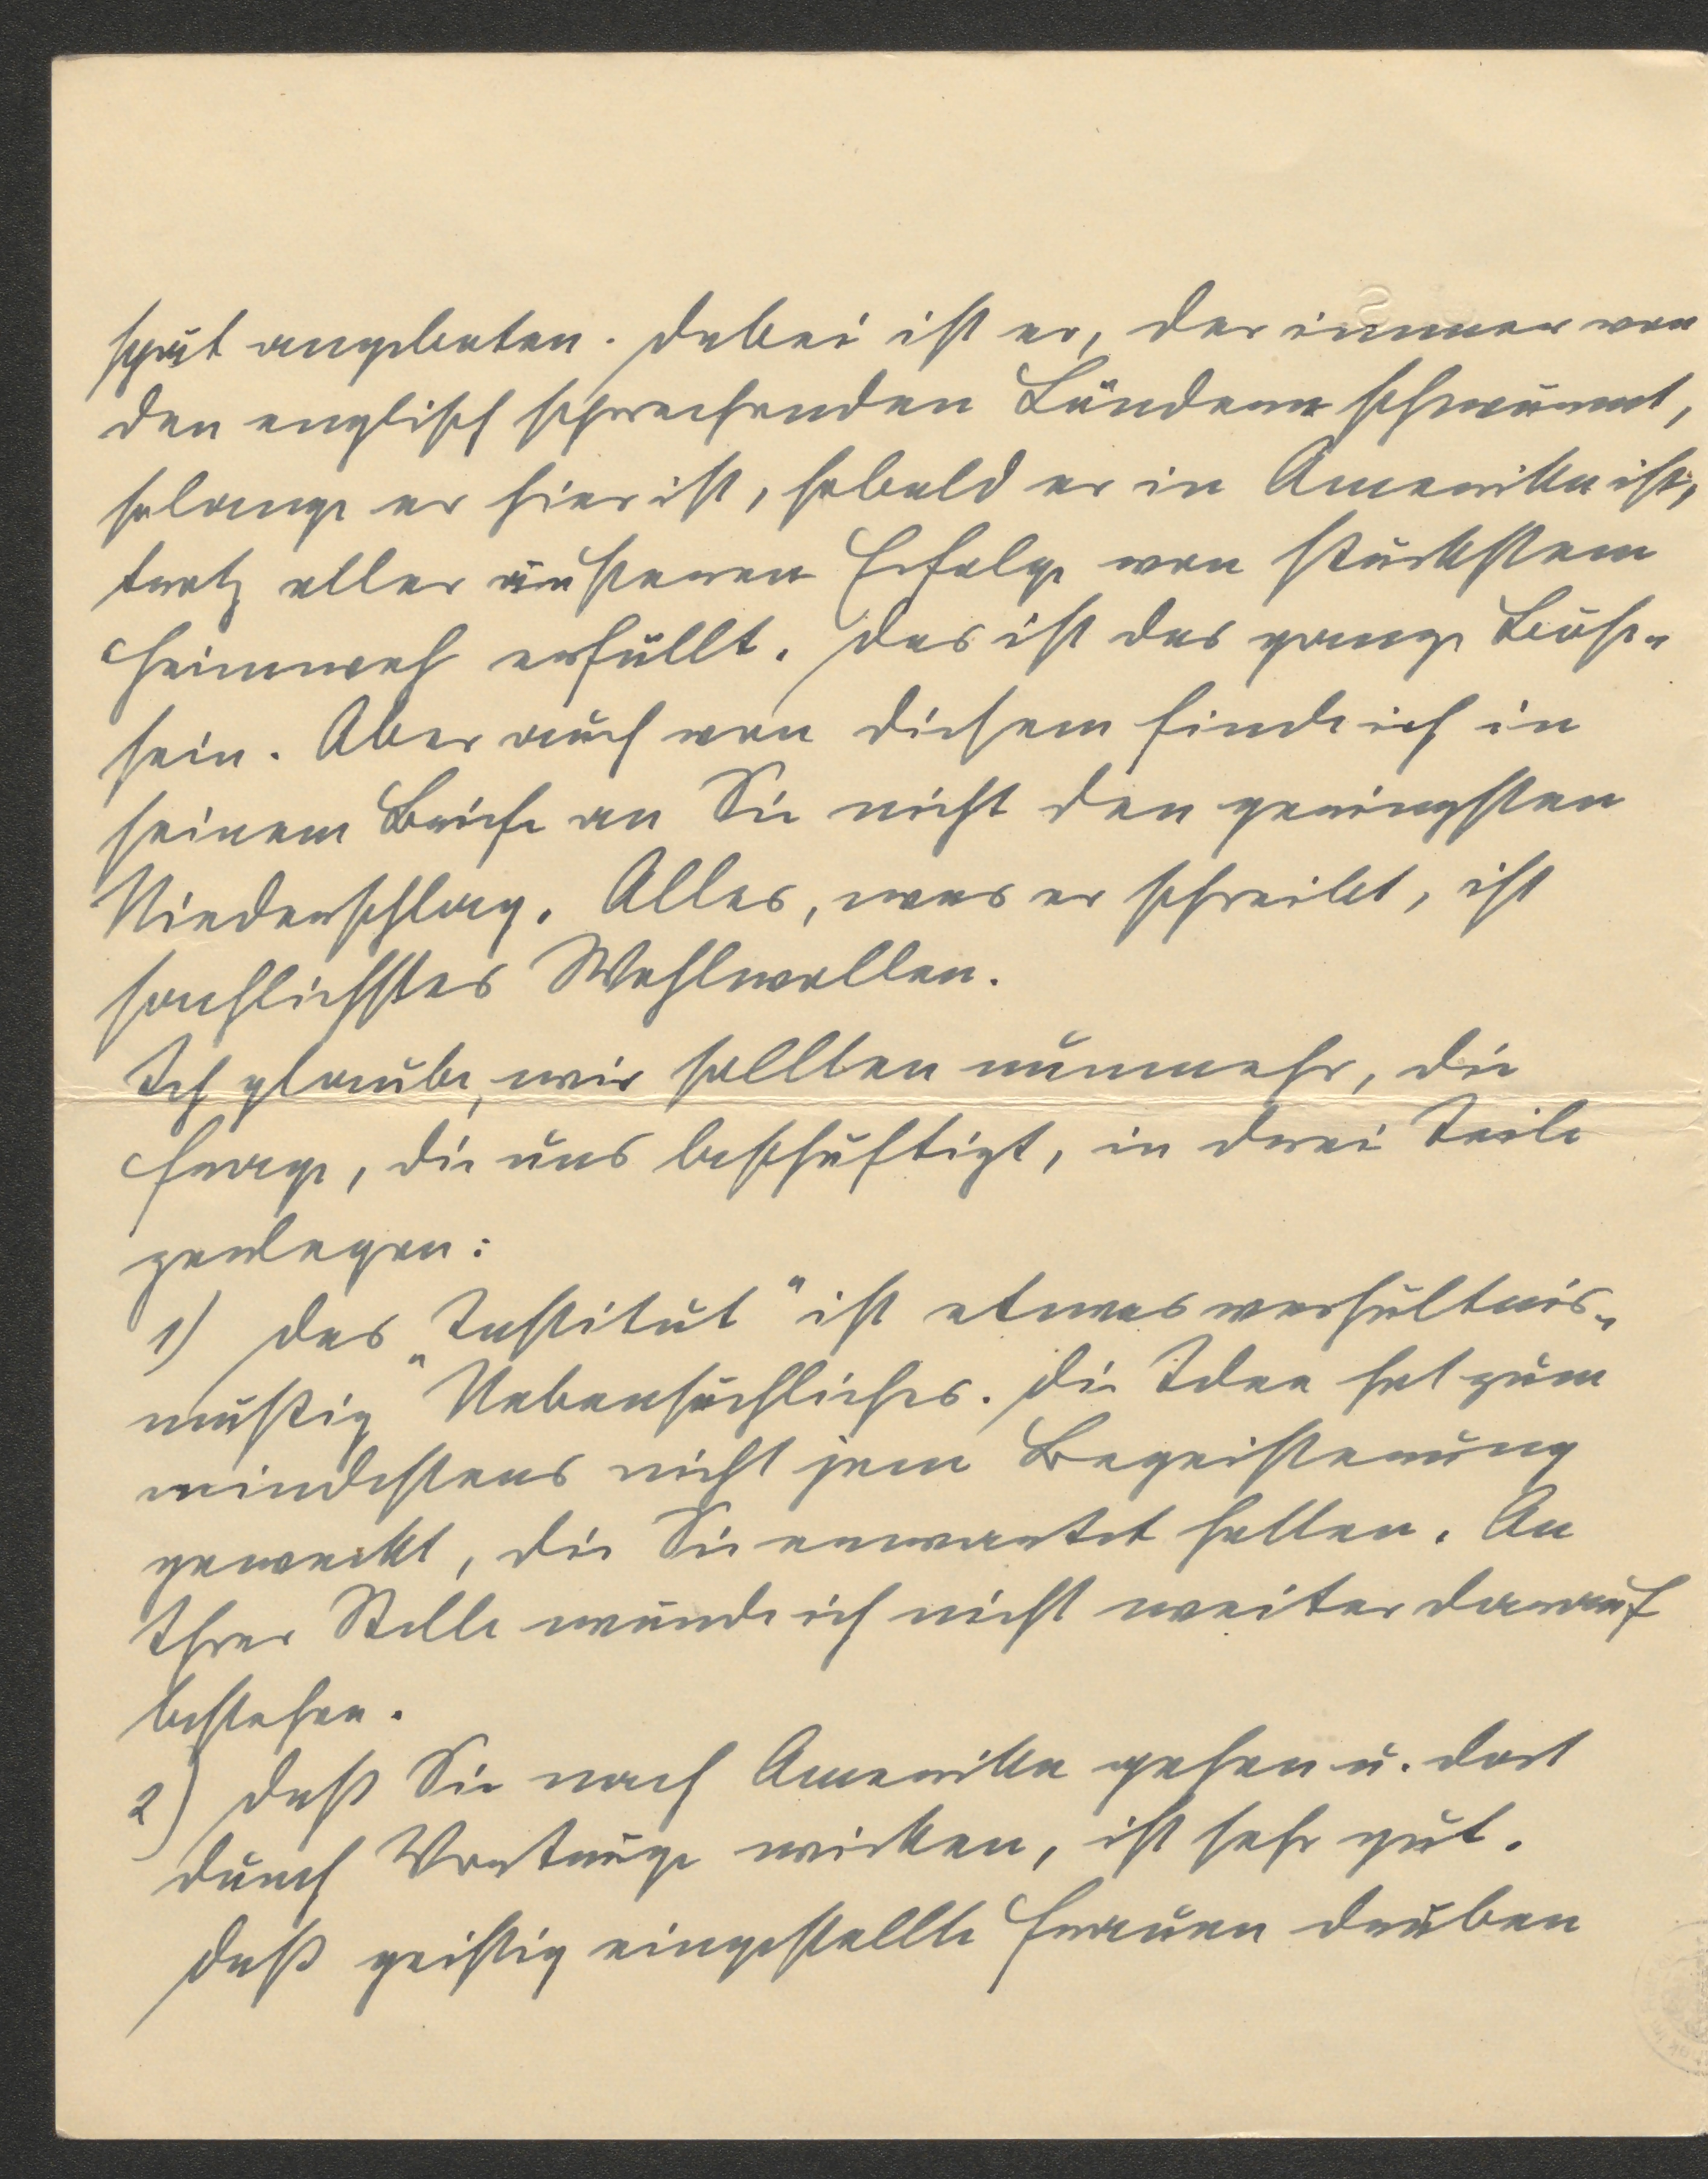 spät angeboten. Dabei ist er, der immer von
den englisch sprechenden Ländern schwärmt,
solange er hier ist, sobald er in Amerika ist,
trotz aller äußeren Erfolge von stärkstem
Heimweh erfüllt. Das ist das ganze Böse-
sein. Aber auch von diesem finde ich in
seinem Briefe an Sie nicht den geringsten
Niederschlag. Alles, was er schreibt, ist
sachlichstes Wohlwollen.
Ich glaube, wir sollten nunmehr, die
Frage, die uns beschäftigt, in drei Teile
zerlegen:
1) Das „Institut“ ist etwas verhältnis-
mäßig Nebensächliches. Die Idee hat zum
mindestens nicht jene Begeisterung
geweckt, die Sie erwartet hatten. An
Ihrer Stelle würde ich nicht weiter darauf
bestehen.
2) Daß Sie nach Amerika gehen u. dort
durch Vorträge wirken, ist sehr gut.
Daß geistig eingestellte Frauen drüben